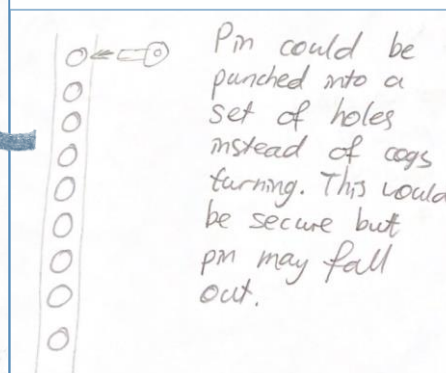 Pin could be
punched into a
set of holes
instead of cogs
turning. This would
be secure but
pin may fall
out.